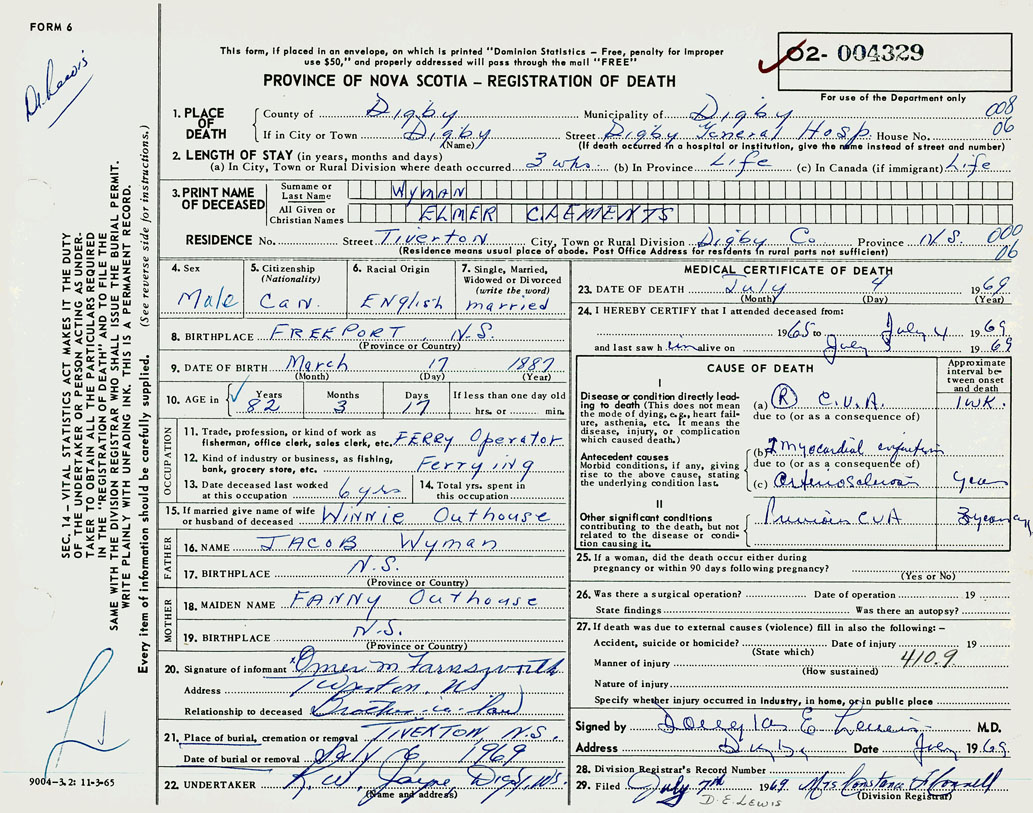 FORM 6
Dr. Lewis
This form, if placed in an envelope, on which is printed "Dominion Statistics – Free, penalty for improper
use $50," and properly addressed will pass through the mail "FREE"
PROVINCE OF NOVA SCOTIA – REGISTRATION OF DEATH
02- 004329
For use of the Department only
1. PLACE OF DEATH
County of Digby Municipality of Digby 008
If in City or Town Digby Street Digby General Hosp. House No. 06
(Name) (If death occurred in a hospital or institution, give the name instead of street and number)
2. LENGTH OF STAY (in years, months and days)
(a) In City, Town or Rural Division where death occurred 3 wks. (b) In Province Life (c) In Canada (if immigrant) Life
3. PRINT NAME OF DECEASED
Surname or Last Name WYMAN
All Given or Christian Names ELMER CLEMENTS
RESIDENCE No. Street Tiverton City, Town or Rural Division Digby Co Province N.S. 000
(Residence means usual place of abode. Post Office Address for residents in rural parts not sufficient) 06
4. Sex Male
5. Citizenship (Nationality) Can.
6. Racial Origin English
7. Single, Married, Widowed or Divorced (write the word) married
8. BIRTHPLACE FREEPORT, N.S.
(Province or Country)
9. DATE OF BIRTH March 17 1887
(Month) (Day) (Year)
10. AGE in Years Months Days If less than one day old
82 3 17 hrs. or min.
OCCUPATION
11. Trade, profession, or kind of work as
fisherman, office clerk, sales clerk, etc. FERRY Operator
12. Kind of industry or business, as fishing,
bank, grocery store, etc. Ferrying
13. Date deceased last worked
at this occupation 6 yrs
14. Total yrs. spent in
this occupation
15. If married give name of wife
or husband of deceased WINNIE Outhouse
FATHER
16. NAME JACOB Wyman
17. BIRTHPLACE N.S.
(Province or Country)
MOTHER
18. MAIDEN NAME FANNY Outhouse
19. BIRTHPLACE N.S.
(Province or Country)
20. Signature of informant x Omer M Farnsworth
Address Tiverton, N.S.
Relationship to deceased Brother-in-law
21. Place of burial, cremation or removal TIVERTON, N.S.
Date of burial or removal July 6 1969
22. UNDERTAKER R.W. Digby, N.S.
(Name and address)
MEDICAL CERTIFICATE OF DEATH
23. DATE OF DEATH July 4 1969
(Month) (Day) (Year)
24. I HEREBY CERTIFY that I attended deceased from:
1965 to July 4 1969
and last saw h im alive on July 3 1969
CAUSE OF DEATH
Approximate interval between onset and death
I
Disease or condition directly leading to death (This does not
mean the mode of dying, e.g., heart failure, asthenia, etc. It means the
disease, injury, or complication which caused death.)
(a) (R) C.V.A. 1 WK.
due to (or as a consequence of)
Antecedent causes
Morbid conditions, if any, giving
rise to the above cause, stating
the underlying condition last.
(b) ? myocardial infarction
due to (or as a consequence of)
(c) Arteriosclerosis years
II
Other significant conditions
contributing to the death, but not
related to the disease or condition causing it.
Previous CVA
25. If a woman, did the death occur either during
pregnancy or within 90 days following pregnancy?
(Yes or No)
26. Was there a surgical operation? Date of operation 19
State findings Was there an autopsy?
27. If death was due to external causes (violence) fill in also the following: –
Accident, suicide or homicide? Date of injury 19
(State which)
Manner of injury 410.9
(How sustained)
Nature of injury
Specify whether injury occurred in industry, in home, or in public place
Signed by Douglas E Lewis M.D.
Address Digby Date July 1969
28. Division Registrar's Record Number
29. Filed July 7th 1969 Mrs
(Division Registrar)
D.E. LEWIS
SEC. 14 – VITAL STATISTICS ACT MAKES IT THE DUTY
OF THE UNDERTAKER OR PERSON ACTING AS UNDER-
TAKER TO OBTAIN ALL THE PARTICULARS REQUIRED
IN THE "REGISTRATION OF DEATH" AND TO FILE THE
SAME WITH THE DIVISION REGISTRAR WHO SHALL ISSUE THE BURIAL PERMIT.
WRITE PLAINLY WITH UNFADING INK. THIS IS A PERMANENT RECORD.
Every item of information should be carefully supplied. (See reverse side for instructions.)
9004–3.2: 11-3-65